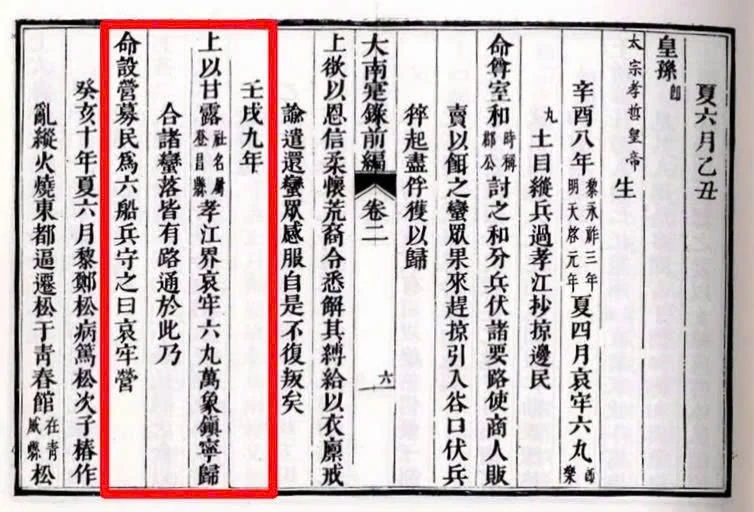 夏六月乙丑
皇孫即
太宗孝哲皇帝生
辛酉八年黎永祚三年明天啓元年夏四月哀牢六丸即樂
丸土目縱兵過孝江抄掠邊民
命尊室和時稱郡公討之和分兵伏諸要路使商人販
賣以餌之蠻眾果來趕掠引入谷口伏兵
猝起盡俘獲以歸
大南寔錄前編 卷二 六
上欲以恩信柔懷荒裔令悉解其縛給以衣廩戒
諭遣還蠻眾感服自是不復叛矣
壬戌九年
上以甘露社名屬登昌縣孝江界哀牢六丸萬象鎮寧歸
合諸蠻落皆有路通於此乃
命設營募民爲六船兵守之曰哀牢營
癸亥十年夏六月黎鄭松病篤松次子椿作
亂縱火燒東都逼遷松于青春館在青威縣松